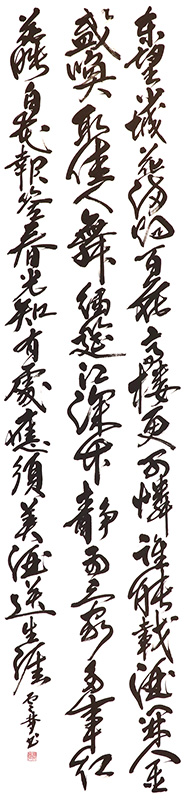 东望少城花満烟百花高楼更可憐誰能載酒開金
盞喚取佳人舞繡筵江深竹静两三家多事红
花映白花報答春光知有處應須美酒送生涯